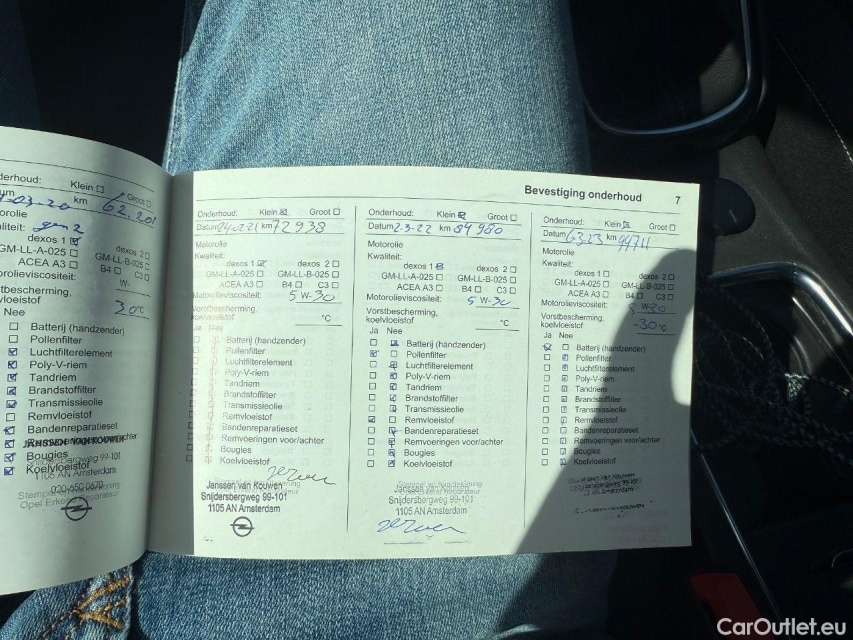 Bevestiging onderhoud 7
nderhoud: Klein Groot
-03-20 km 62.201
orolie
liteit: gen2
dexos 1 dexos 2
GM-LL-A-025 GM-LL-B-025
ACEA A3 B4 C3
orolieviscositeit: W-
tbescherming,
vloeistof 30°C
Nee
Batterij (handzender)
Pollenfilter
Luchtfilterelement
Poly-V-riem
Tandriem
Brandstoffilter
Transmissieolie
Remvloeistof
Bandenreparatieset
JANSSEN VAN KOUWEN
Bougies
Snijdersbergweg 99-101
Koelvloeistof
1105 AN Amsterdam
020-650 0670
Opel Erkend Reparateur
Onderhoud: Klein Groot
Datum 24-02-21 km 72938
Motorolie
Kwaliteit:
dexos 1 dexos 2
GM-LL-A-025 GM-LL-B-025
ACEA A3 B4 C3
Motorolieviscositeit: 5 W-30
Vorstbescherming,
koelvloeistof °C
Ja Nee
Batterij (handzender)
Pollenfilter
Luchtfilterelement
Poly-V-riem
Tandriem
Brandstoffilter
Transmissieolie
Remvloeistof
Bandenreparatieset
Remvoeringen voor/achter
Bougies
Koelvloeistof
Janssen van Kouwen
Snijdersbergweg 99-101
1105 AN Amsterdam
Onderhoud: Klein Groot
Datum 2-3-22 km 84980
Motorolie
Kwaliteit:
dexos 1 dexos 2
GM-LL-A-025 GM-LL-B-025
ACEA A3 B4 C3
Motorolieviscositeit: 5 W-30
Vorstbescherming,
koelvloeistof °C
Ja Nee
Batterij (handzender)
Pollenfilter
Luchtfilterelement
Poly-V-riem
Tandriem
Brandstoffilter
Transmissieolie
Remvloeistof
Bandenreparatieset
Remvoeringen voor/achter
Bougies
Koelvloeistof
Janssen van Kouwen
Snijdersbergweg 99-101
1105 AN Amsterdam
Onderhoud: Klein Groot
Datum 6323 km 99711
Motorolie
Kwaliteit:
dexos 1 dexos 2
GM-LL-A-025 GM-LL-B-025
ACEA A3 B4 C3
Motorolieviscositeit: 5 W-30
Vorstbescherming,
koelvloeistof -30°C
Ja Nee
Batterij (handzender)
Pollenfilter
Luchtfilterelement
Poly-V-riem
Tandriem
Brandstoffilter
Transmissieolie
Remvloeistof
Bandenreparatieset
Remvoeringen voor/achter
Bougies
Koelvloeistof
Janssen van Kouwen
Snijdersbergweg 99-101
1105 AN Amsterdam
CarOutlet.eu